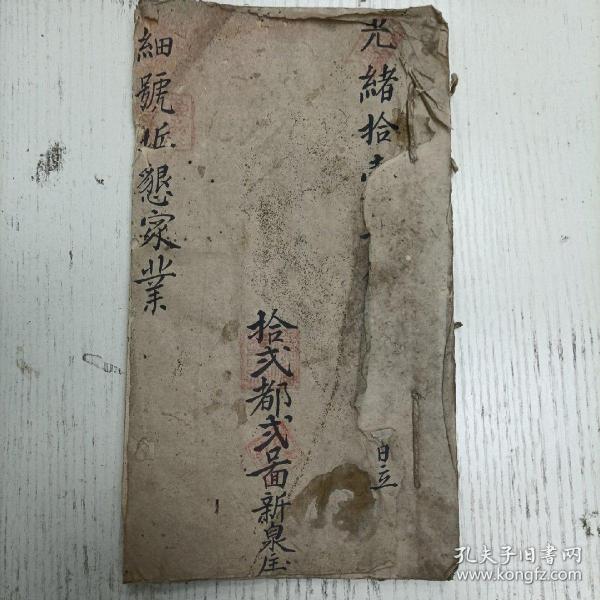 光緒拾
日立
拾弍都弍啚新泉庄
細號坵懇家業
孔夫子旧书网
www.kongfz.com